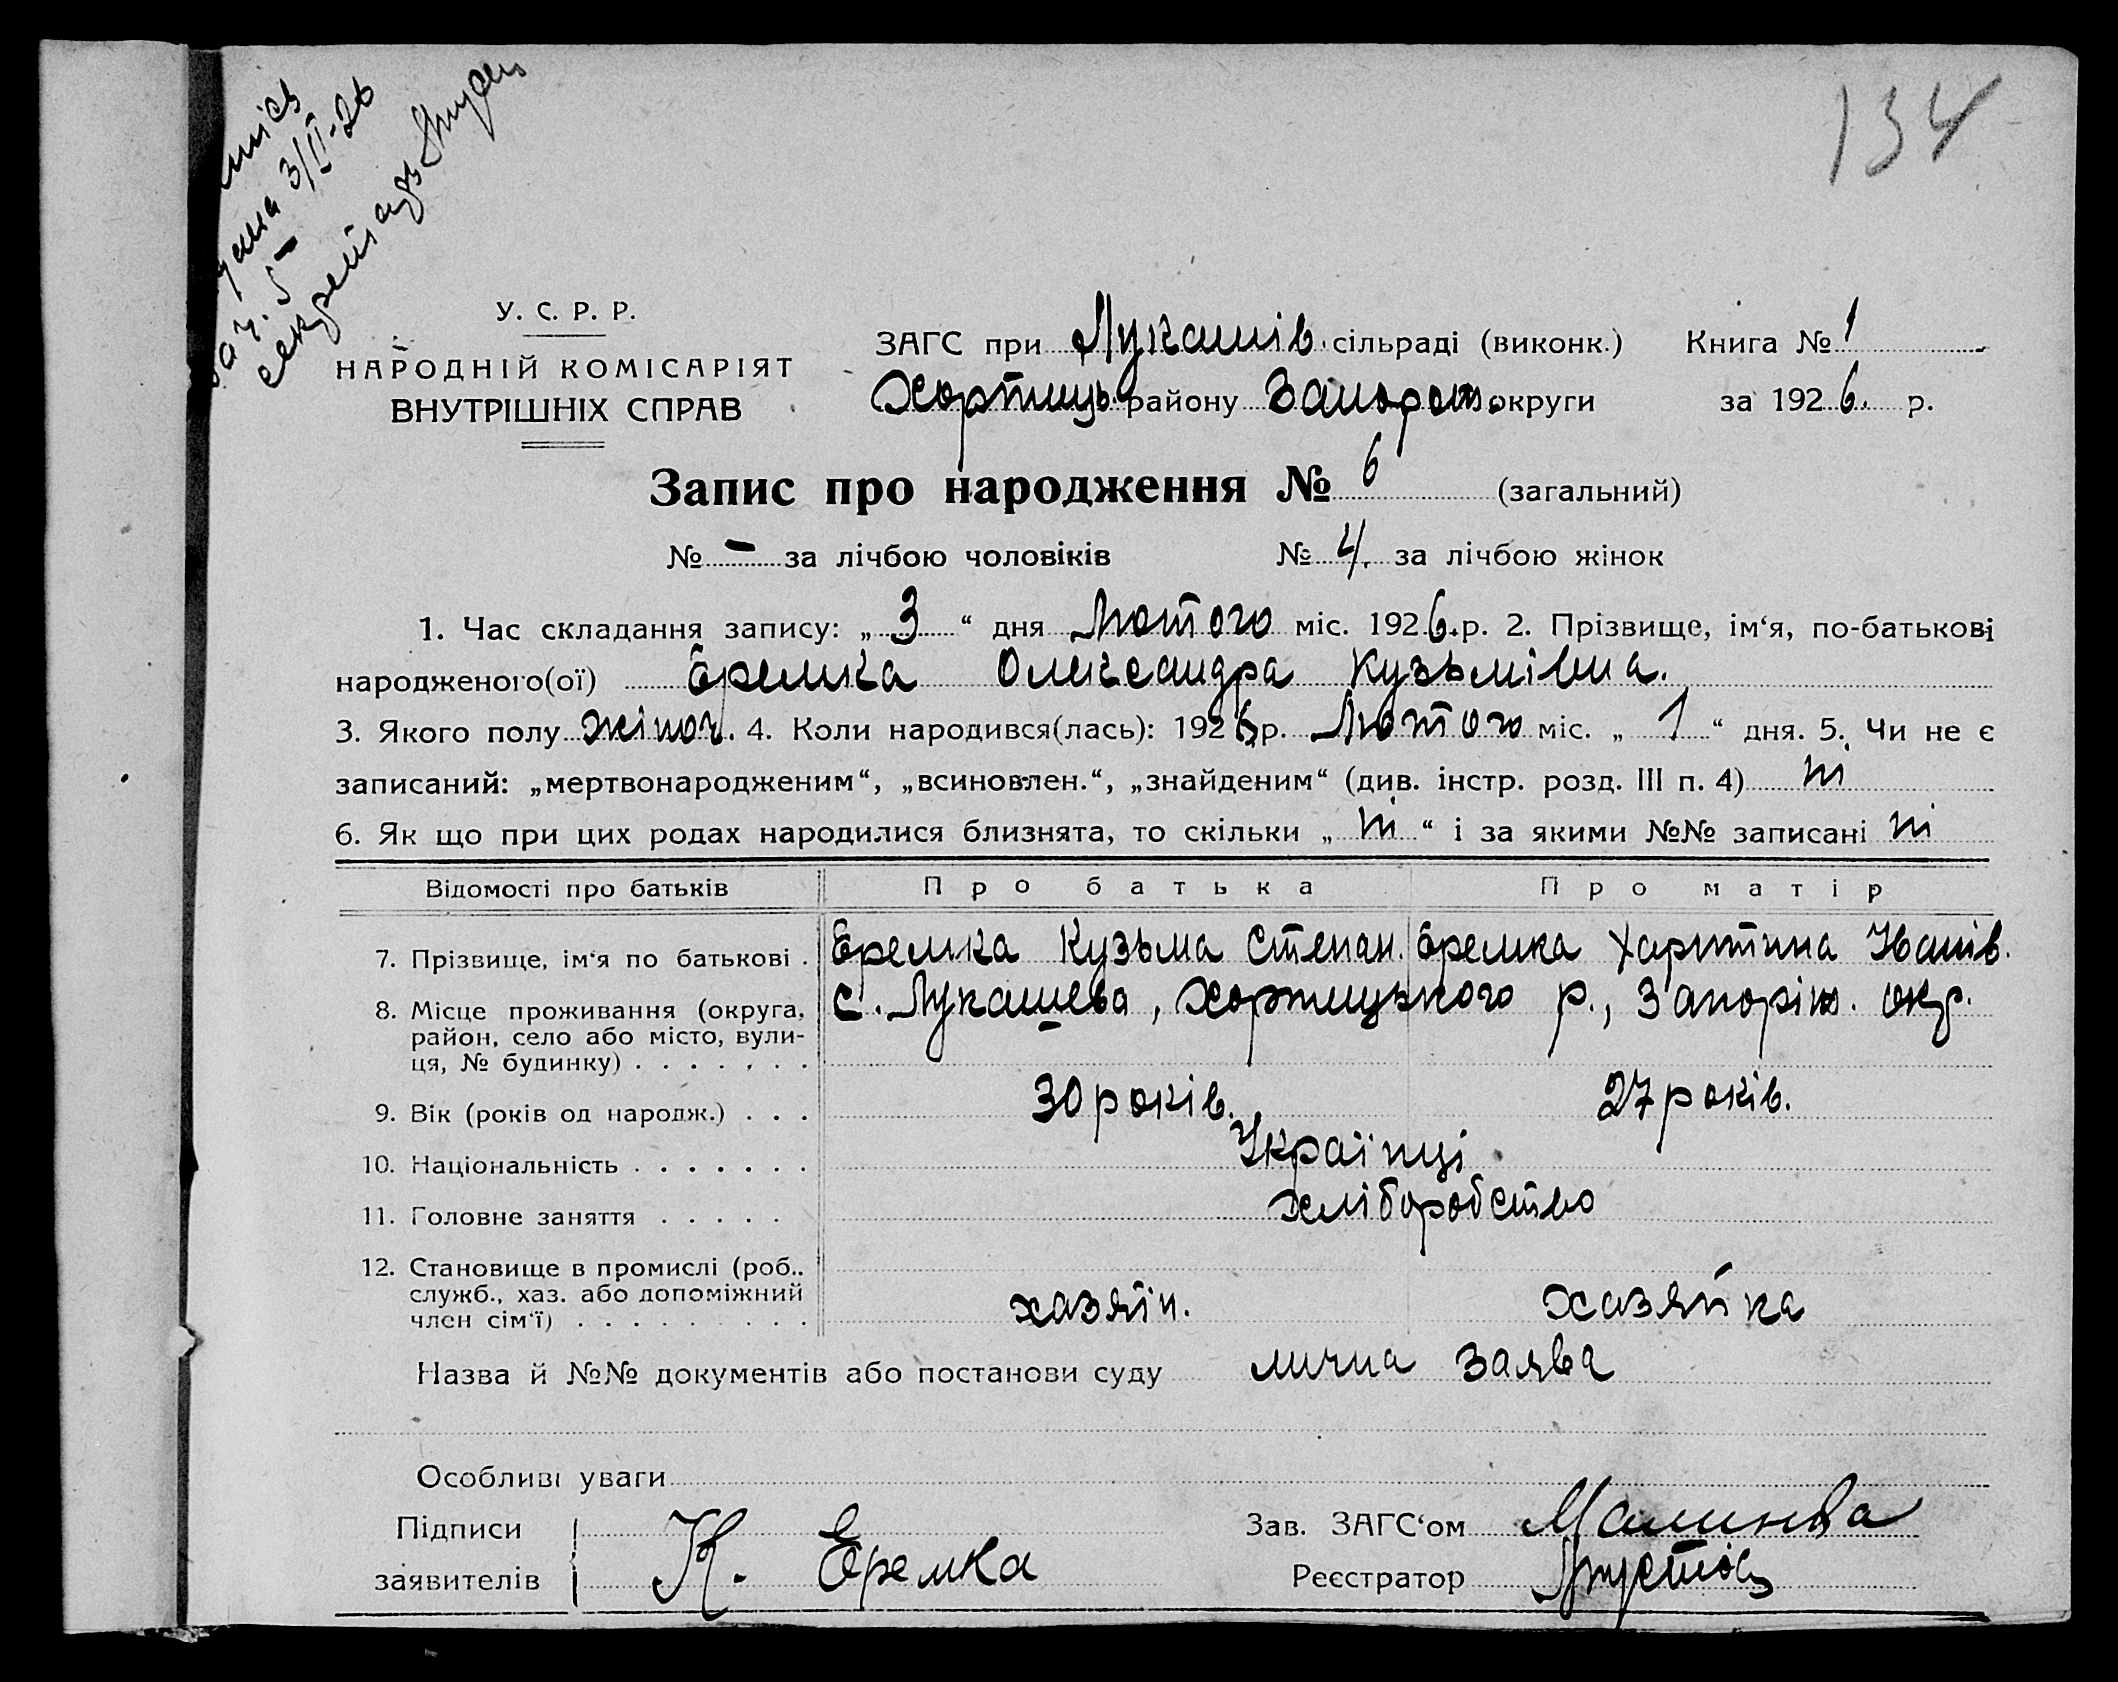 134
3/II-26
У. С. Р. Р.
НАРОДНІЙ КОМІСАРІЯТ
ВНУТРІШНІХ СПРАВ
ЗАГС при Лукашів. сільраді (виконк.) Книга № 1
Хортиць. району Запорож. округи за 1926. р.
Запис про народження № 6 (загальний)
№ – за лічбою чоловіків № 4. за лічбою жінок
1. Час складання запису: „3“ дня Лютого міс. 1926. р. 2. Прізвище, ім‘я, по-батькові
народженого(ої) Еремка Олександра Кузьмівна.
3. Якого полу жіноч. 4. Коли народився(лась): 1926 р. Лютого міс. „1“ дня. 5. Чи не є
записаний: „мертвонародженим“, „всиновлен.“, „знайденим“ (див. інстр. розд. III п. 4) ні
6. Як що при цих родах народилися близнята, то скільки „ні“ і за якими №№ записані ні
Відомості про батьків Про батька Про матір
7. Прізвище, ім‘я по батькові . Еремка Кузьма Степан. Еремка Харитина Іванів.
8. Місце проживання (округа, с. Лукашева, Хортицького р., Запоріж. окр.
район, село або місто, вули-
ця, № будинку) . . . . . . .
9. Вік (років од народж.) . . . 30 років. 27 років.
10. Національність . . . . . . . Українці
11. Головне заняття . . . . . хліборобство
12. Становище в промислі (роб..
служб., хаз. або допоміжний хазяїн. хазяйка
член сім‘ї) . . . . . . . . .
Назва й №№ документів або постанови суду лична заява
Особливі уваги
Підписи Зав. ЗАГС‘ом
заявителів К. Еремка Реєстратор